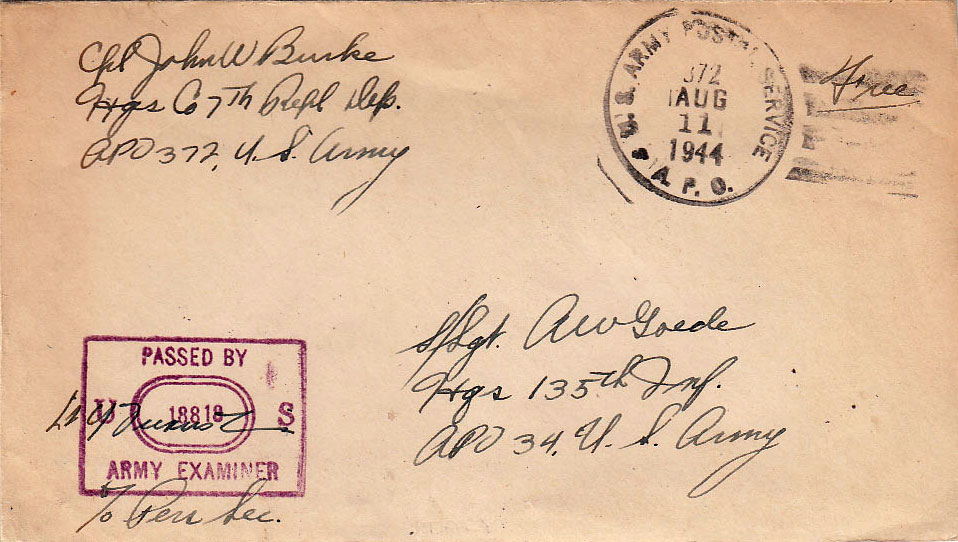 Cpl John W Burke
Hqs Co 7th Repl Dep.
APO 372, U. S. Army
U. S. ARMY POSTAL SERVICE
372
AUG
11
1944
A. P. O.
Free
S/Sgt. A W Goede
Hqs 135th Inf.
APO 34, U. S. Army
PASSED BY
U 18818 S
ARMY EXAMINER
c/o Pers Sec.